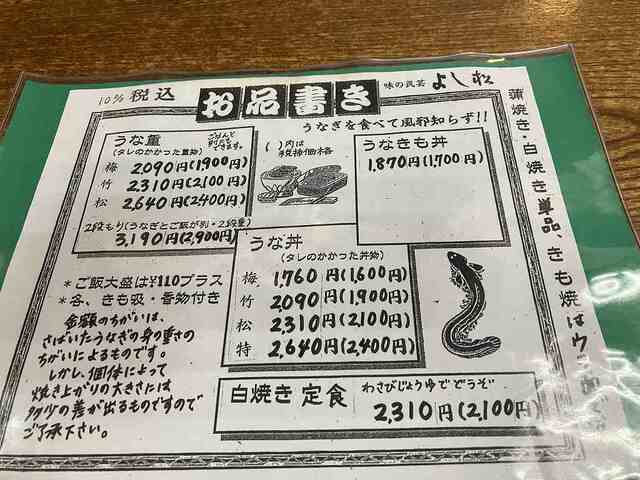 10% 税込
お品書き
味の民芸 よし松
うなぎを食べて風邪知らず!!
うな重
(タレのかかった重物)
ごはんと
別だてできます。
梅 2090円(1,900円)
竹 2310円(2,100円)
松 2,640円(2,400円)
2段もり(うなぎとご飯が別・2段重)
3,190円(2,900円)
( )内は
税抜価格
うなきも丼
1,870円(1,700円)
うな丼
(タレのかかった丼物)
梅 1,760円(1,600円)
竹 2090円(1,900円)
松 2310円(2,100円)
特 2,640円(2,400円)
*ご飯大盛は¥110プラス
*各、きも吸・香物付き
金額のちがいは、
さばいたうなぎの身の重さの
ちがいによるものです。
しかし、個体によって
焼き上がりの大きさは
多少の差が出るものですので
ご了承下さい。
白焼き 定食 わさびじょうゆでどうぞ
2,310円(2,100円)
蒲焼き・白焼き単品、きも焼はウラ面